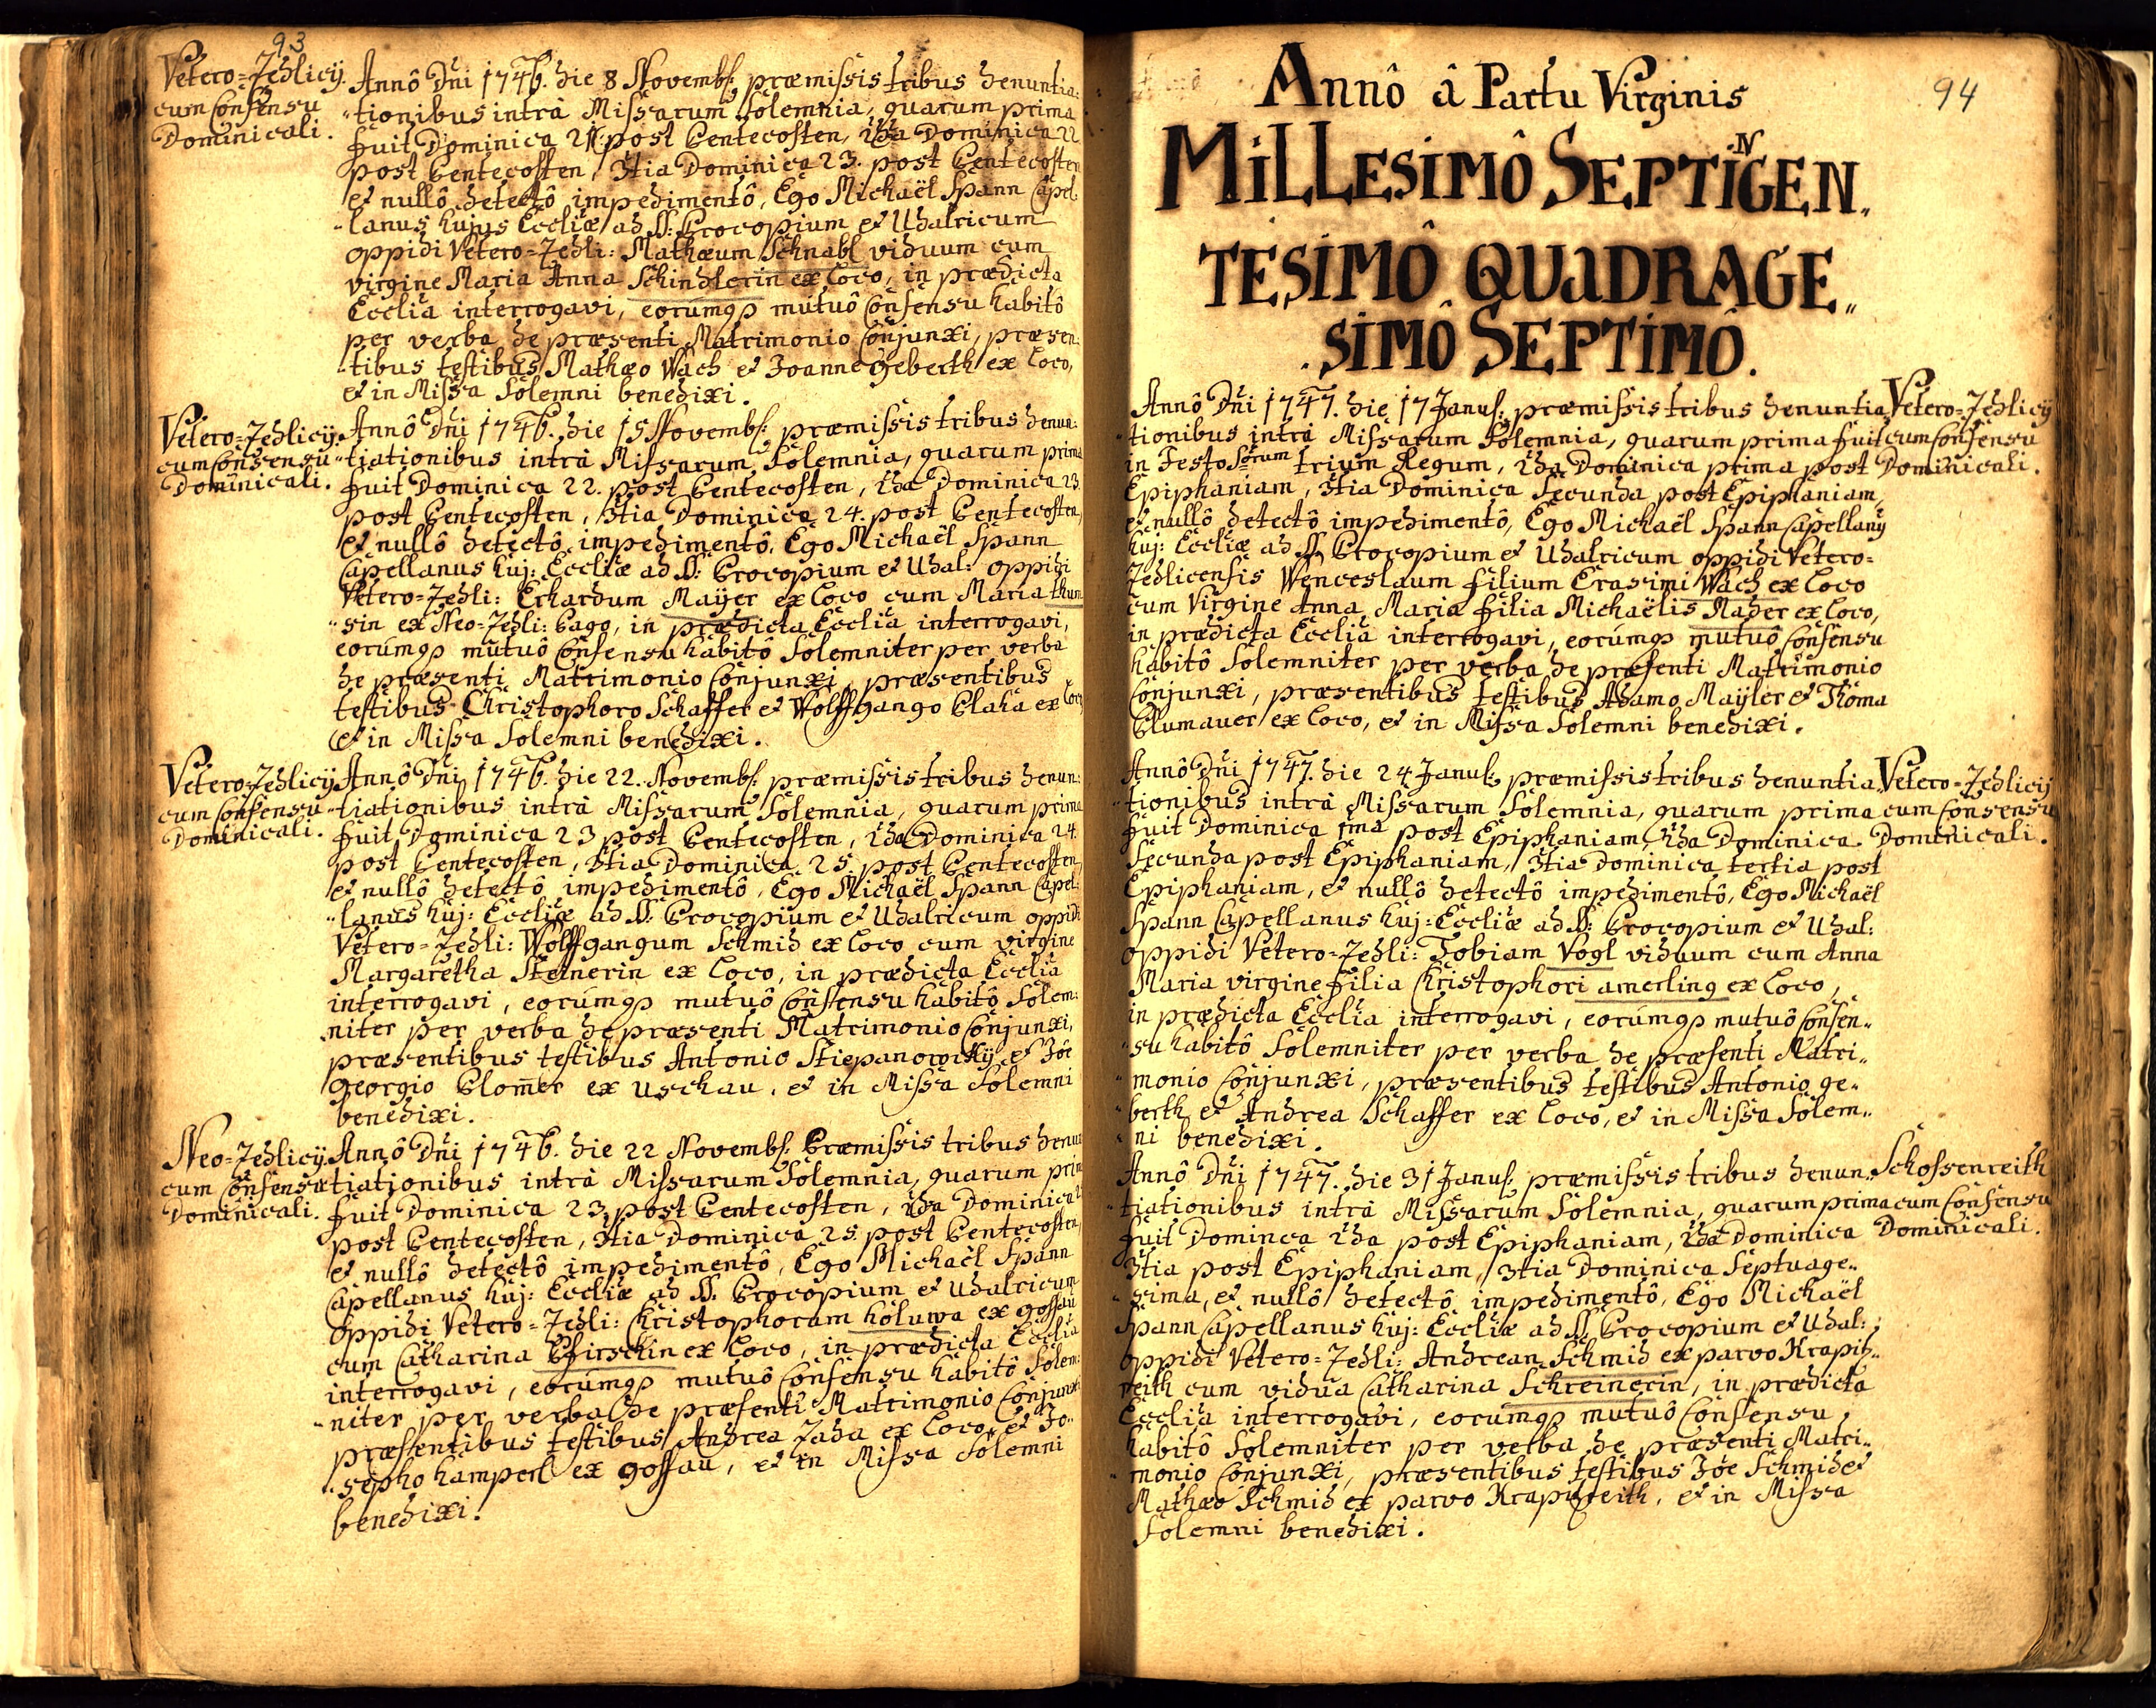 93
Vetero=Zedlicÿ.
cum Consensu
Dominicali.
Annô Dni 1746. die 8 Novembs: præmissis tribus denuntia:
tionibus intrà Missarum Solemnia, quarum prima
fuit Dominica 21. post Pentecosten, 2da Dominica 22
post Pentecosten, 3tia Dominica 23. post Pentecosten
et nullô detectô impedimentô, Ego Michaël Spann Capel:
lanus hujus Eccliæ ad SS: Procopium et Udalricum
oppidi Vetero=Zedli: Mathæum Schnabl viduum cum
virgine Maria Anna Schindlerin ex loco, in prædicta
Ecclia interrogavi, eorúmqs mutuô Consensu habitô
per verba de præsenti Matrimonio Conjunxi, præsen:
tibus testibus Mathæo Wach et Joanne Geberth ex loco,
et in Missa Solemni benedixi.
Vetero=Zedlicÿ.
cum Consensu
Dominicali.
Annô Dni 1746. die 15 Novembs: præmissis tribus denun:
tiationibus intrà Missarum Solemnia, quarum prima
fuit Dominica 22. post Pentecosten, 2da Dominica 23.
post Pentecosten, 3tia Dominica 24. post Pentecosten,
et nullô detectô impedimentô, Ego Michaël Spann
Capellanus huj: Eccliæ ad SS: Procopium et Udal: oppidi
Vetero=Zedli: Erhardum Maÿer ex loco cum Maria thum
sin ex Neo=Zedli: Pago, in prædicta Ecclia interrogavi,
eorúmqs mutuô Consensu habitô Solemniter per verba
de præsenti Matrimonio Conjunxi, præsentibus
testibus Christophoro Schaffer et Wolffgango Plaha ex loco
et in Missa Solemni benedixi.
Vetero=Zedlicÿ
cum Consensu
Dominicali.
Annô Dni 1746. die 22. Novembs: præmissis tribus denun:
tiationibus intrà Missarum Solemnia, quarum prima
fuit Dominica 23 post Pentecosten, 2da Dominica 24.
post Pentecosten, 3tia Dominica 25 post Pentecosten,
et nullô detectô impedimentô, Ego Michaël Spann Capel:
lanus huj: Eccliæ ad SS: Procopium et Udalricum oppidi
Vetero=Zedli: Wolffgangum Schmid ex loco cum virgine
Margaretha Steinerin ex loco, in prædicta Ecclia
interrogavi, eorúmqs mutuô Consensu habitô Solem:
niter per verba de præsenti Matrimonio Conjunxi,
præsentibus testibus Antonio Stiepanowskÿ et Jôe
Georgio Plomer ex Uschau, et in Missa Solemni
benedixi.
Neo=Zedlicÿ.
cum Consensu
Dominicali.
Annô Dni 1746. die 22 Novembs: Præmissis tribus denun
tiationibus intrà Missarum Solemnia, quarum prim
fuit Dominica 23. post Pentecosten, 2da Dominica
post Pentecosten, 3tia Dominica 25. post Pentecosten,
et nullô detectô impedimentô, Ego Michaël Spann
Capellanus huj: Eccliæ ad SS. Procopium et Udalricum
oppidi Vetero=Zedli: Christophorum holuwa ex gossau
cum Catharina Pfirschin ex loco, in prædicta Ecclia
interrogavi, eorúmqs mutuô Consensu habitô Solem:
niter per verba de præsenti Matrimonio Conjunxi
præsentibus testibus Andrea Zaha ex loco, et Jo:
sepho hamperl ex gossau, et in Missa Solemni
benedixi.
94
Annô â Partu Virginis
MiLLESIMÔ SEPTINGEN„
TESIMÔ QUADRAGE„
SIMÔ SEPTIMÔ.
Annô Dni 1747. die 17 Janus: præmissis tribus denuntia
tionibus intrà Missarum Solemnia, quarum prima fuit
in Festo Sôrum trium Regum, 2da Dominica prima post
Epiphaniam, 3tia Dominica Secunda post Epiphaniam,
et nullô detectô impedimentô, Ego Michaël Spann Capellanÿ
huj: Eccliæ ad SS. Procopium et Udalricum oppidi Vetero=
Zedlicensis Wenceslaum filium Erasimi Wach ex loco
cum Virgine Anna Maria filia Michaëlis Mader ex loco,
in prædicta Ecclia interrogavi, eorúmqs mutuô Consensu
habitô Solemniter per verba de præsenti Matrimonio
Conjunxi, præsentibus testibus Adamo Maÿler et Thoma
Plumauer ex loco, et in Missa Solemni benedixi.
Vetero=Zedlicÿ
cum Consensu
Dominicali.
Annô Dni 1747. die 24 Janus: præmissis tribus denuntia
tionibus intrà Missarum Solemnia, quarum prima
fuit Dominica 1ma post Epiphaniam, 2da Dominica
Secunda post Epiphaniam, 3tia Dominica tertia post
Epiphaniam, et nullô detectô impedimentô, Ego Michaël
Spann Capellanus huj: Eccliæ ad SS: Procopium et Udal:
oppidi Vetero=Zedli: Tobiam Vogl viduum cum Anna
Maria virgine filia Christophori amerling ex loco,
in prædicta Ecclia interrogavi, eorúmqs mutuô Consen„
su habitô Solemniter per verba de præsenti Matri„
monio Conjunxi, præsentibus testibus Antonio ge„
berth et Andrea Schaffer ex loco, et in Missa Solem„
ni benedixi.
Vetero=Zedlicÿ
cum Consensu
Dominicali.
Annô Dni 1747. die 31 Janus: præmissis tribus denun„
tiationibus intrà Missarum Solemnia, quarum prima
fuit Dominca 2da post Epiphaniam, 2da Dominica
3tia post Epiphaniam, 3tia Dominica Septuage„
sima, et nullô detectô impedimentô, Ego Michaël
Spann Capellanus huj: Eccliæ ad SS. Procopium et Udal:
oppidi Vetero=Zedli: Andream Schmid ex parvo Krapitz„
reith cum vidua Catharina Schreinerin, in prædicta
Ecclia interrogavi, eorumqs mutuô Consensu
habitô Solemniter per verba de præsenti Matri„
monio Conjunxi, præsentibus testibus Jôe Schmid et
Mathæo Schmid ex parvo Krapitzreith, et in Missa
Solemni benedixi.
Schossenreith
cum Consensu
Dominicali.